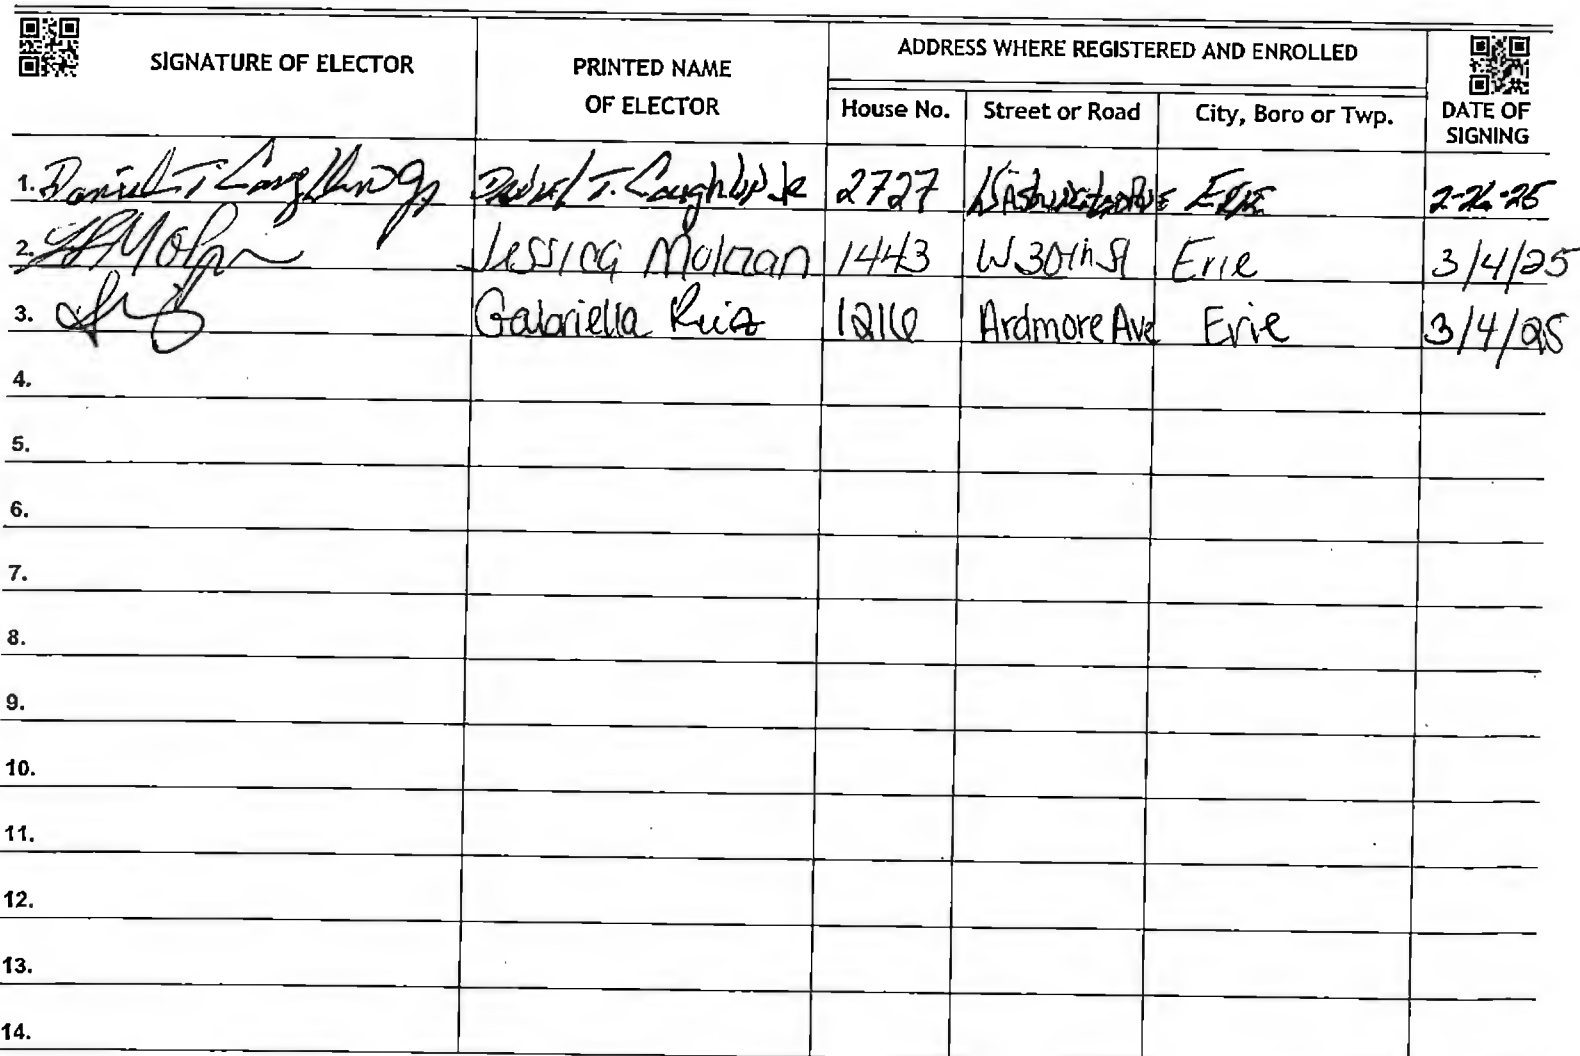 SIGNATURE OF ELECTOR
PRINTED NAME
OF ELECTOR
ADDRESS WHERE REGISTERED AND ENROLLED
House No.
Street or Road
City, Boro or Twp.
DATE OF
SIGNING
1. Daniel T. Coughlin Jr Daniel T. Coughlin Jr 2727 Washington Ave Erie 2-26-25
2. Jessica Molzan 1443 W 30th St Erie 3/4/25
3. Gabriella Ruiz 1216 Ardmore Ave Erie 3/4/25
4.
5.
6.
7.
8.
9.
10.
11.
12.
13.
14.